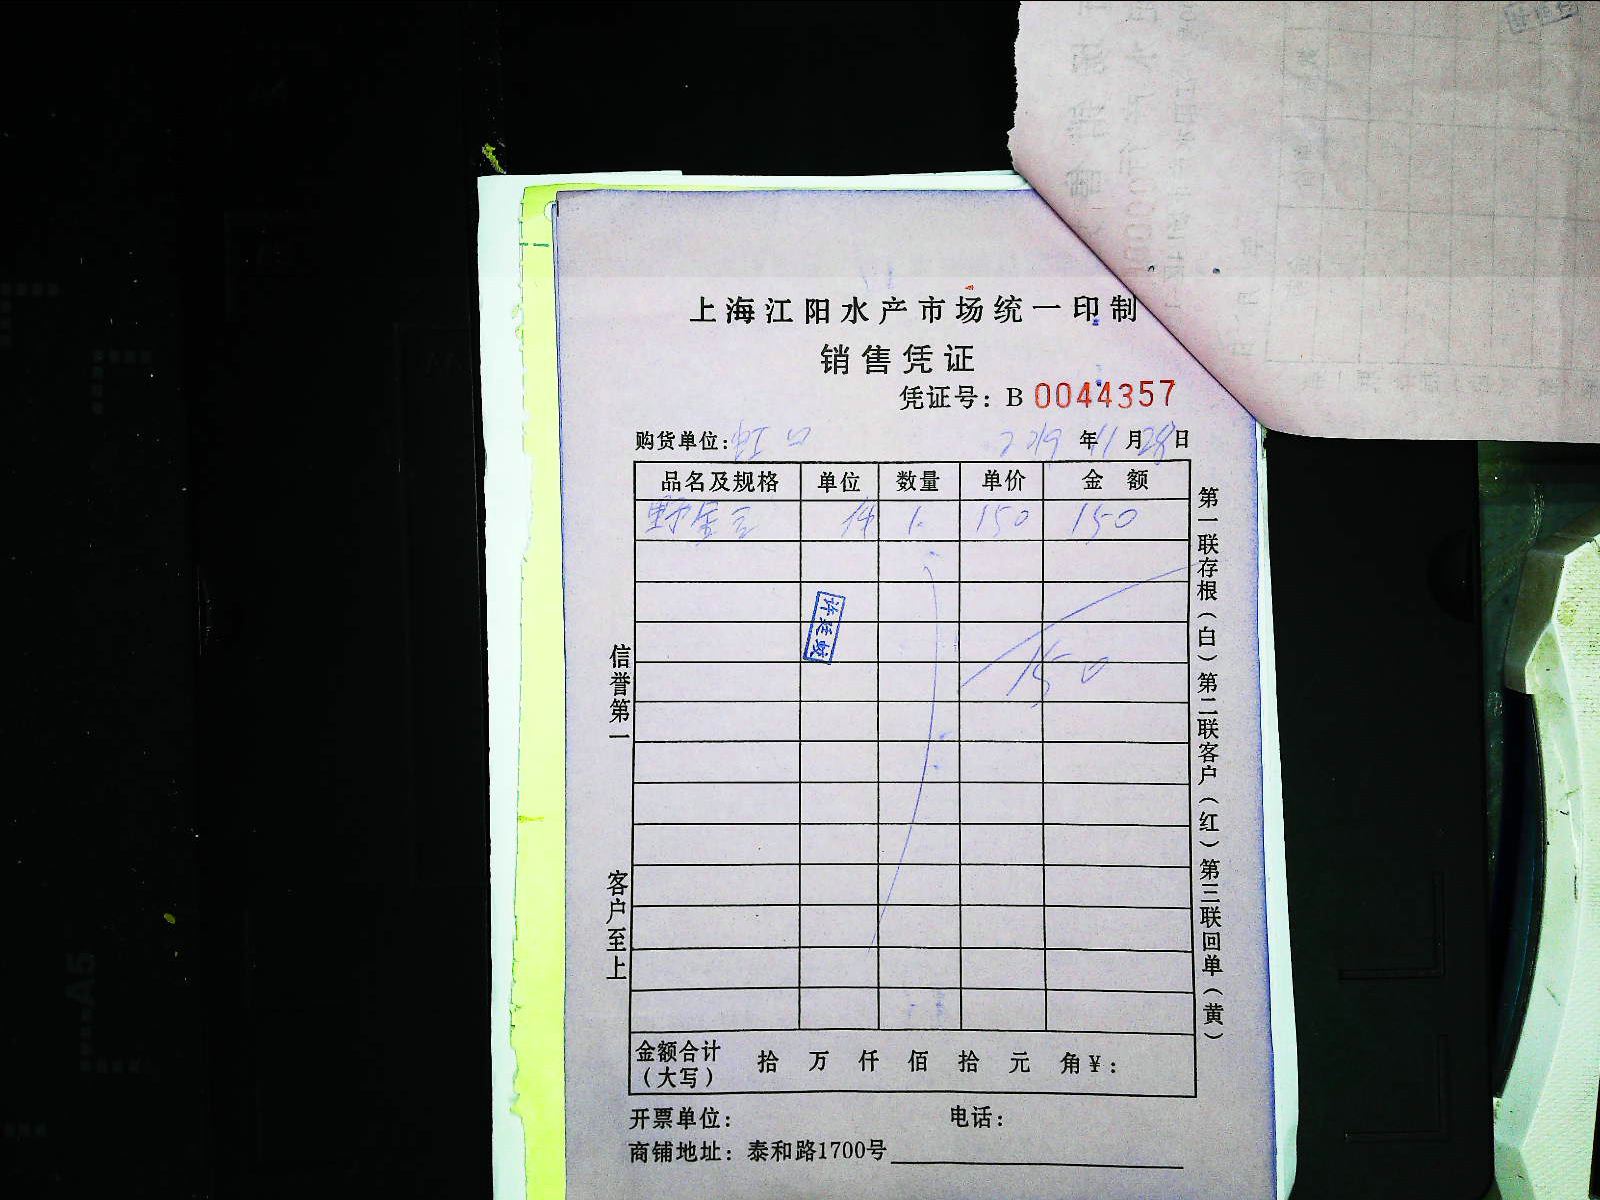 上海江阳水产市场统一印制
销售凭证
凭证号：B 0044357
购货单位：虹口 2019 年 11 月 28 日
品名及规格 单位 数量 单价 金额
件 1. 150 150
150
信誉第一
客户至上
第一联存根（白）第二联客户（红）第三联回单（黄）
金额合计（大写） 拾 万 仟 佰 拾 元 角 ¥：
开票单位： 电话：
商铺地址：泰和路1700号
A5